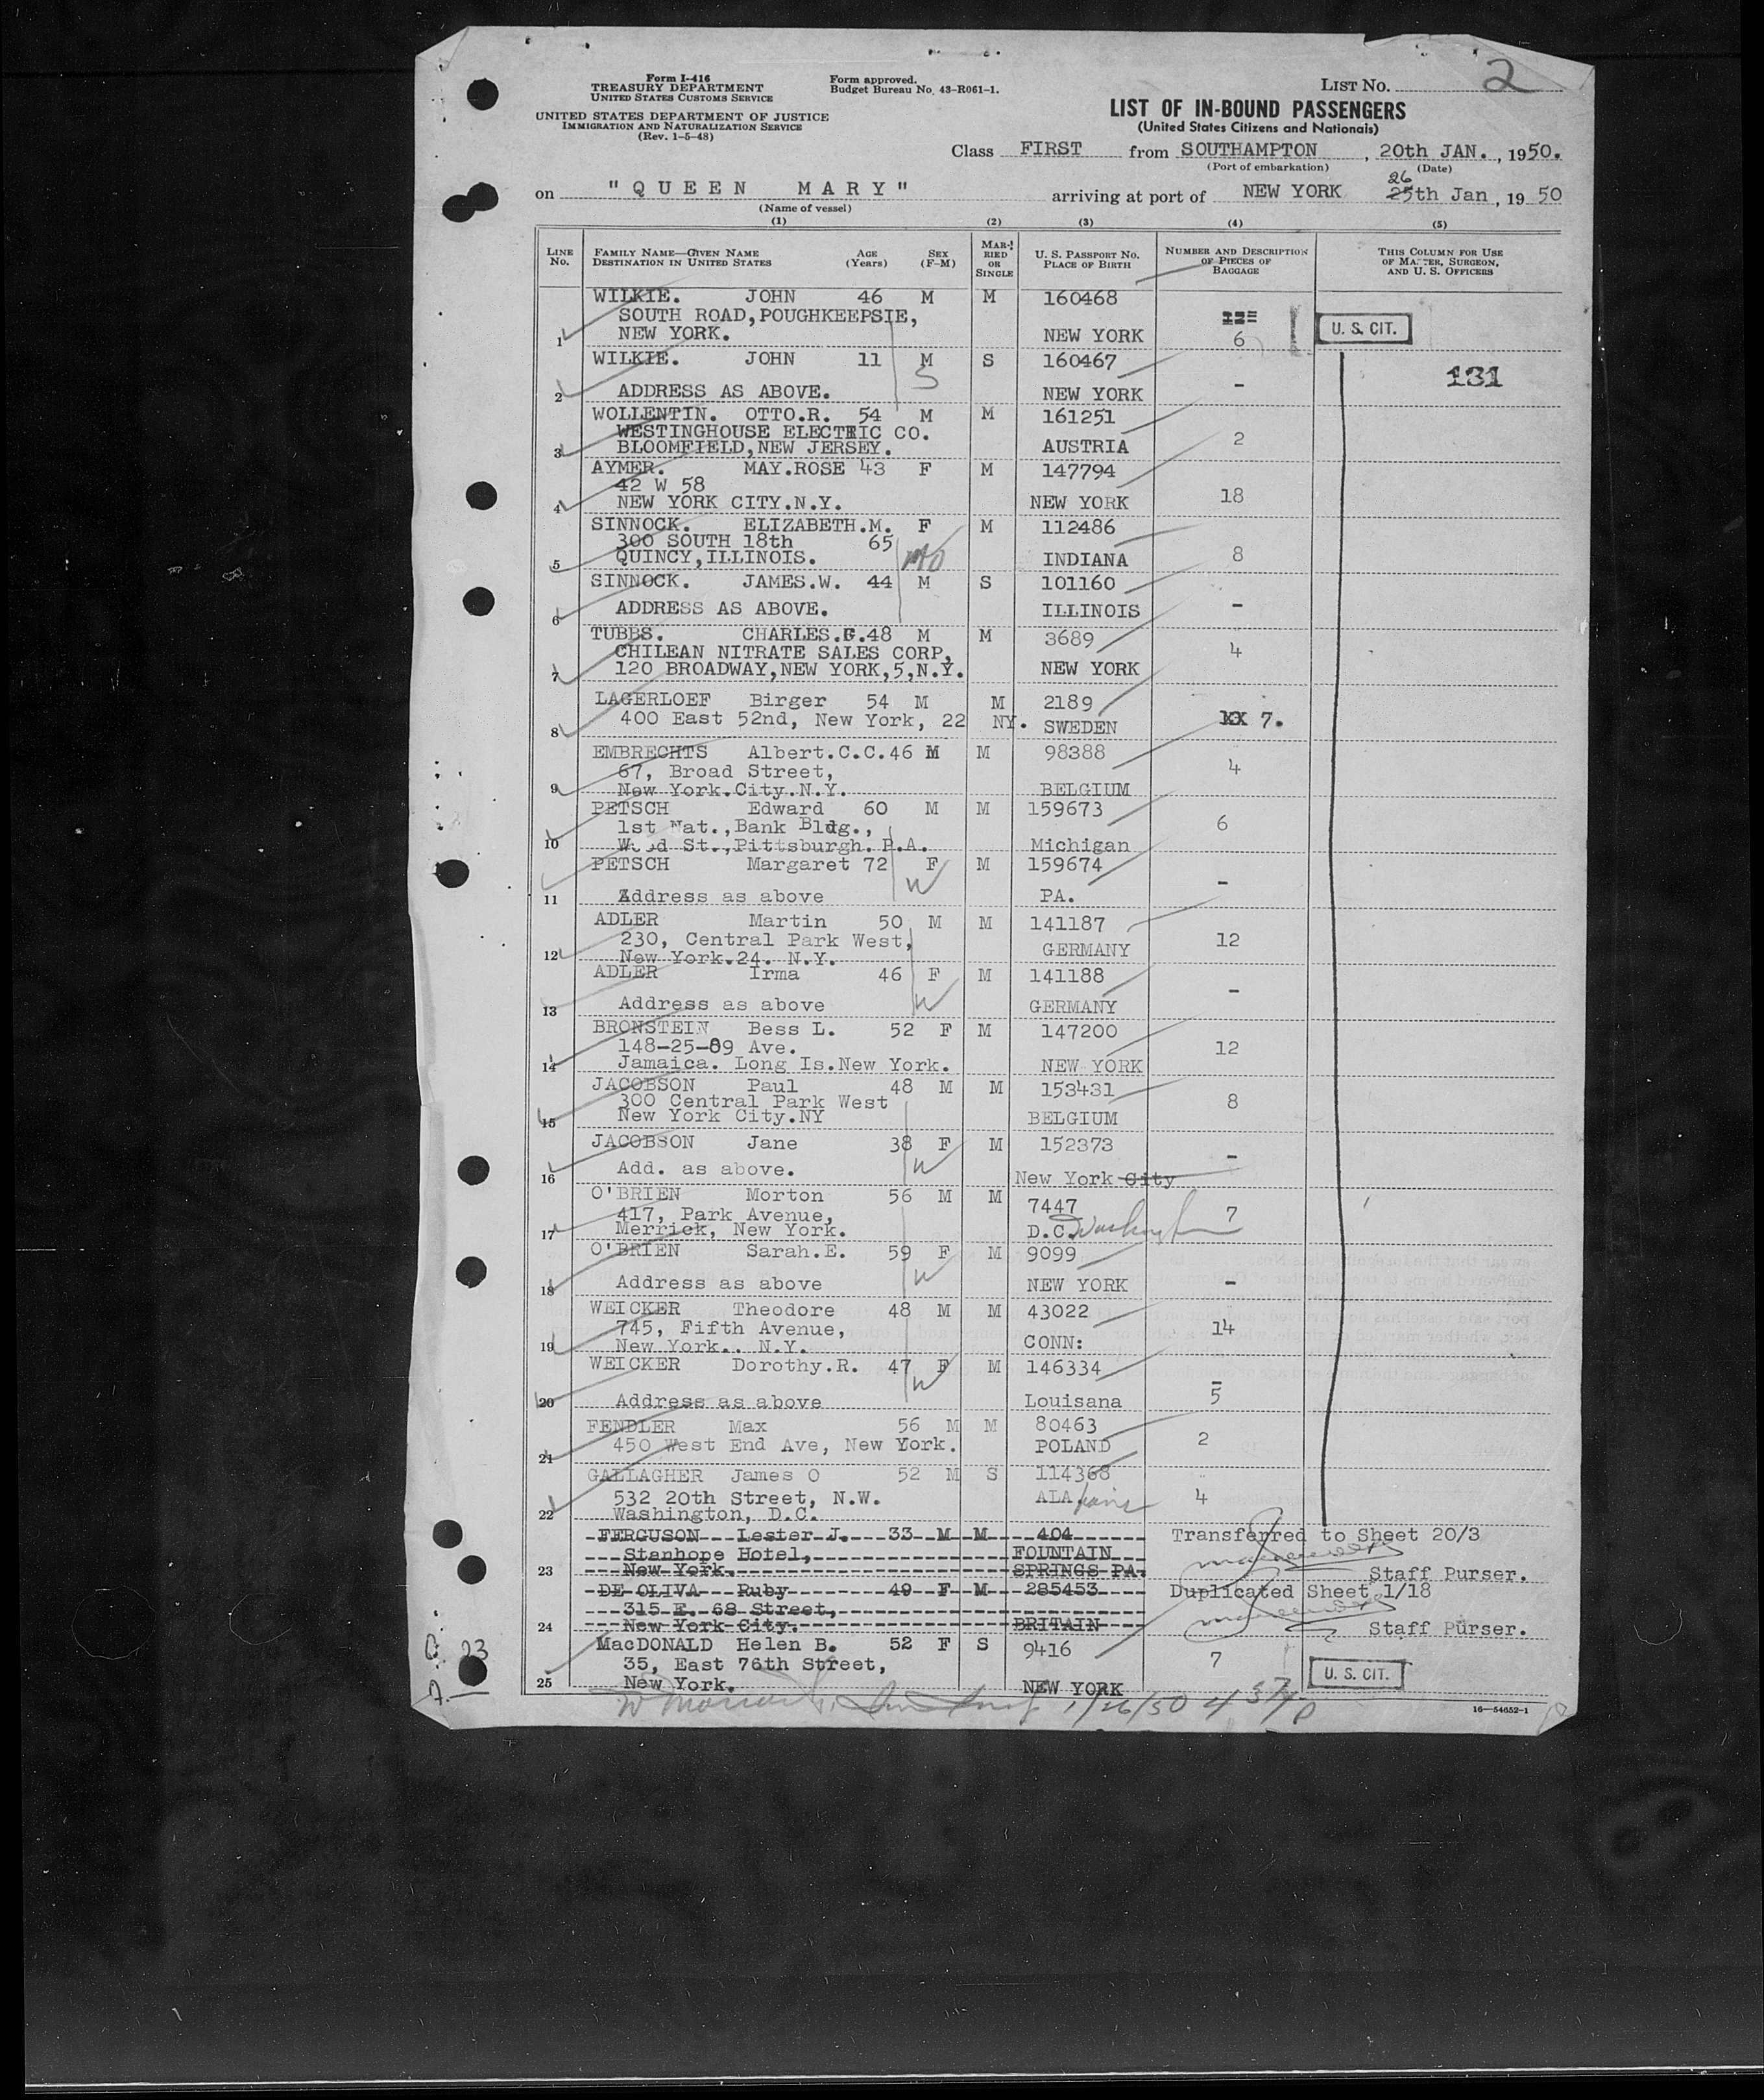 Form I-416
TREASURY DEPARTMENT
UNITED STATES CUSTOMS SERVICE
UNITED STATES DEPARTMENT OF JUSTICE
IMMIGRATION AND NATURALIZATION SERVICE
(Rev. 1-5-48)
Form approved.
Budget Bureau No. 43-R061-1.
LIST No. 2
LIST OF IN-BOUND PASSENGERS
(United States Citizens and Nationals)
Class FIRST from SOUTHAMPTON, 20th JAN., 1950.
(Port of embarkation) (Date)
on "QUEEN MARY" arriving at port of NEW YORK 26 25th Jan, 1950
(Name of vessel)
(1) (2) (3) (4) (5)
LINE No. FAMILY NAME—GIVEN NAME DESTINATION IN UNITED STATES AGE (Years) SEX (F-M) MARRIED OR SINGLE U. S. PASSPORT NO. PLACE OF BIRTH NUMBER AND DESCRIPTION OF PIECES OF BAGGAGE THIS COLUMN FOR USE OF MASTER, SURGEON, AND U. S. OFFICERS
WILKIE. JOHN 46 M M 160468
SOUTH ROAD, POUGHKEEPSIE,
1 NEW YORK. NEW YORK 6 U. S. CIT.
WILKIE. JOHN 11 M S 160467
131
2 ADDRESS AS ABOVE. S NEW YORK -
WOLLENTIN. OTTO.R. 54 M M 161251
WESTINGHOUSE ELECTRIC CO.
3 BLOOMFIELD, NEW JERSEY. AUSTRIA 2
AYMER. MAY.ROSE 43 F M 147794
42 W 58
4 NEW YORK CITY.N.Y. NEW YORK 18
SINNOCK. ELIZABETH.M. F M 112486
300 SOUTH 18th 65
5 QUINCY, ILLINOIS. INDIANA 8
SINNOCK. JAMES.W. 44 M S 101160
6 ADDRESS AS ABOVE. ILLINOIS -
TUBBS. CHARLES.F.48 M M 3689
CHILEAN NITRATE SALES CORP,
7 120 BROADWAY, NEW YORK, 5, N.Y. NEW YORK 4
LAGERLOEF Birger 54 M M 2189
8 400 East 52nd, New York, 22 NY. SWEDEN XX 7.
EMBRECHTS Albert.C.C.46 M M 98388
67, Broad Street,
9 New York.City.N.Y. BELGIUM 4
PETSCH Edward 60 M M 159673
1st Nat., Bank Bldg.,
10 Wood St., Pittsburgh. P.A. Michigan 6
PETSCH Margaret 72 F M 159674
11 Address as above W PA. -
ADLER Martin 50 M M 141187
230, Central Park West,
12 New York.24. N.Y. GERMANY 12
ADLER Irma 46 F M 141188
13 Address as above W GERMANY -
BRONSTEIN Bess L. 52 F M 147200
148-25-89 Ave.
14 Jamaica. Long Is.New York. NEW YORK 12
JACOBSON Paul 48 M M 153431
300 Central Park West
15 New York City.NY BELGIUM 8
JACOBSON Jane 38 F M 152373
16 Add. as above. W New York City -
O'BRIEN Morton 56 M M 7447
417, Park Avenue,
17 Merrick, New York. D.C. Washington 7
O'BRIEN Sarah.E. 59 F M 9099
18 Address as above W NEW YORK -
WEICKER Theodore 48 M M 43022
745, Fifth Avenue,
19 New York.. N.Y. CONN: 14
WEICKER Dorothy.R. 47 F M 146334
20 Address as above W Louisana - 5
FENDLER Max 56 M M 80463
21 450 West End Ave, New York. POLAND 2
GALLAGHER James O 52 M S 114368
532 20th Street, N.W. ALA 4
22 Washington, D.C.
FERGUSON Lester J. 33 M M 404 Transferred to Sheet 20/3
Stanhope Hotel, FOUNTAIN
23 New York. SPRINGS PA. Staff Purser.
DE OLIVA Ruby 49 F M 285453 Duplicated Sheet 1/18
315 E. 68 Street,
24 New York City. BRITAIN Staff Purser.
MacDONALD Helen B. 52 F S 9416
35, East 76th Street, 7 U. S. CIT.
25 New York. NEW YORK
1/26/50
16—54652-1